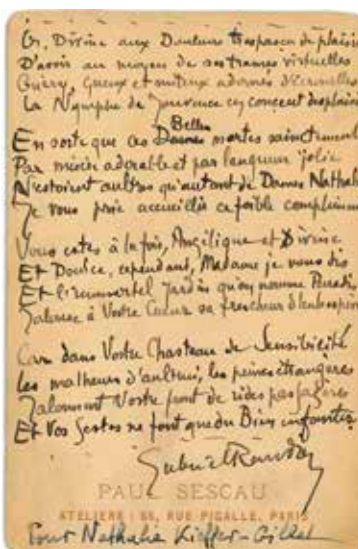 Or, Divine aux Douleurs trespassa de plaisir
D'avoir au moyen de ses trames virtuelles
Guéry, Gueux et miteux adornés d'Ecrouelles
La Nymphe de Jouvence en conceut desplaisir
En sorte que ces Dames Belles mortes sainctement
Par mièvrie adorable et par langueur jolie
N'estoient aultres qu'autant de Dames Nathalie
Je vous prie accueillir ce foible compliment
Vous estes à la fois, Angélique et Divine
Et Doulce, cependant, Madame je vous dis
Et l'immortel Jardin qu'on nomme Paradis
Jalouse à Vostre Cueur sa frescheur
Car dans Vostre Chasteau de Sensibilité
Les malheurs d'aultrui, les peines étrangères
Jalonnent Vostre front de rides passagères
Et Vos Gestes ne font que du Bien
Gabriel Randon
PAUL SESCAU
ATELIERS : 66, RUE PIGALLE, PARIS
Pour Nathalie Kieffer-Gillet